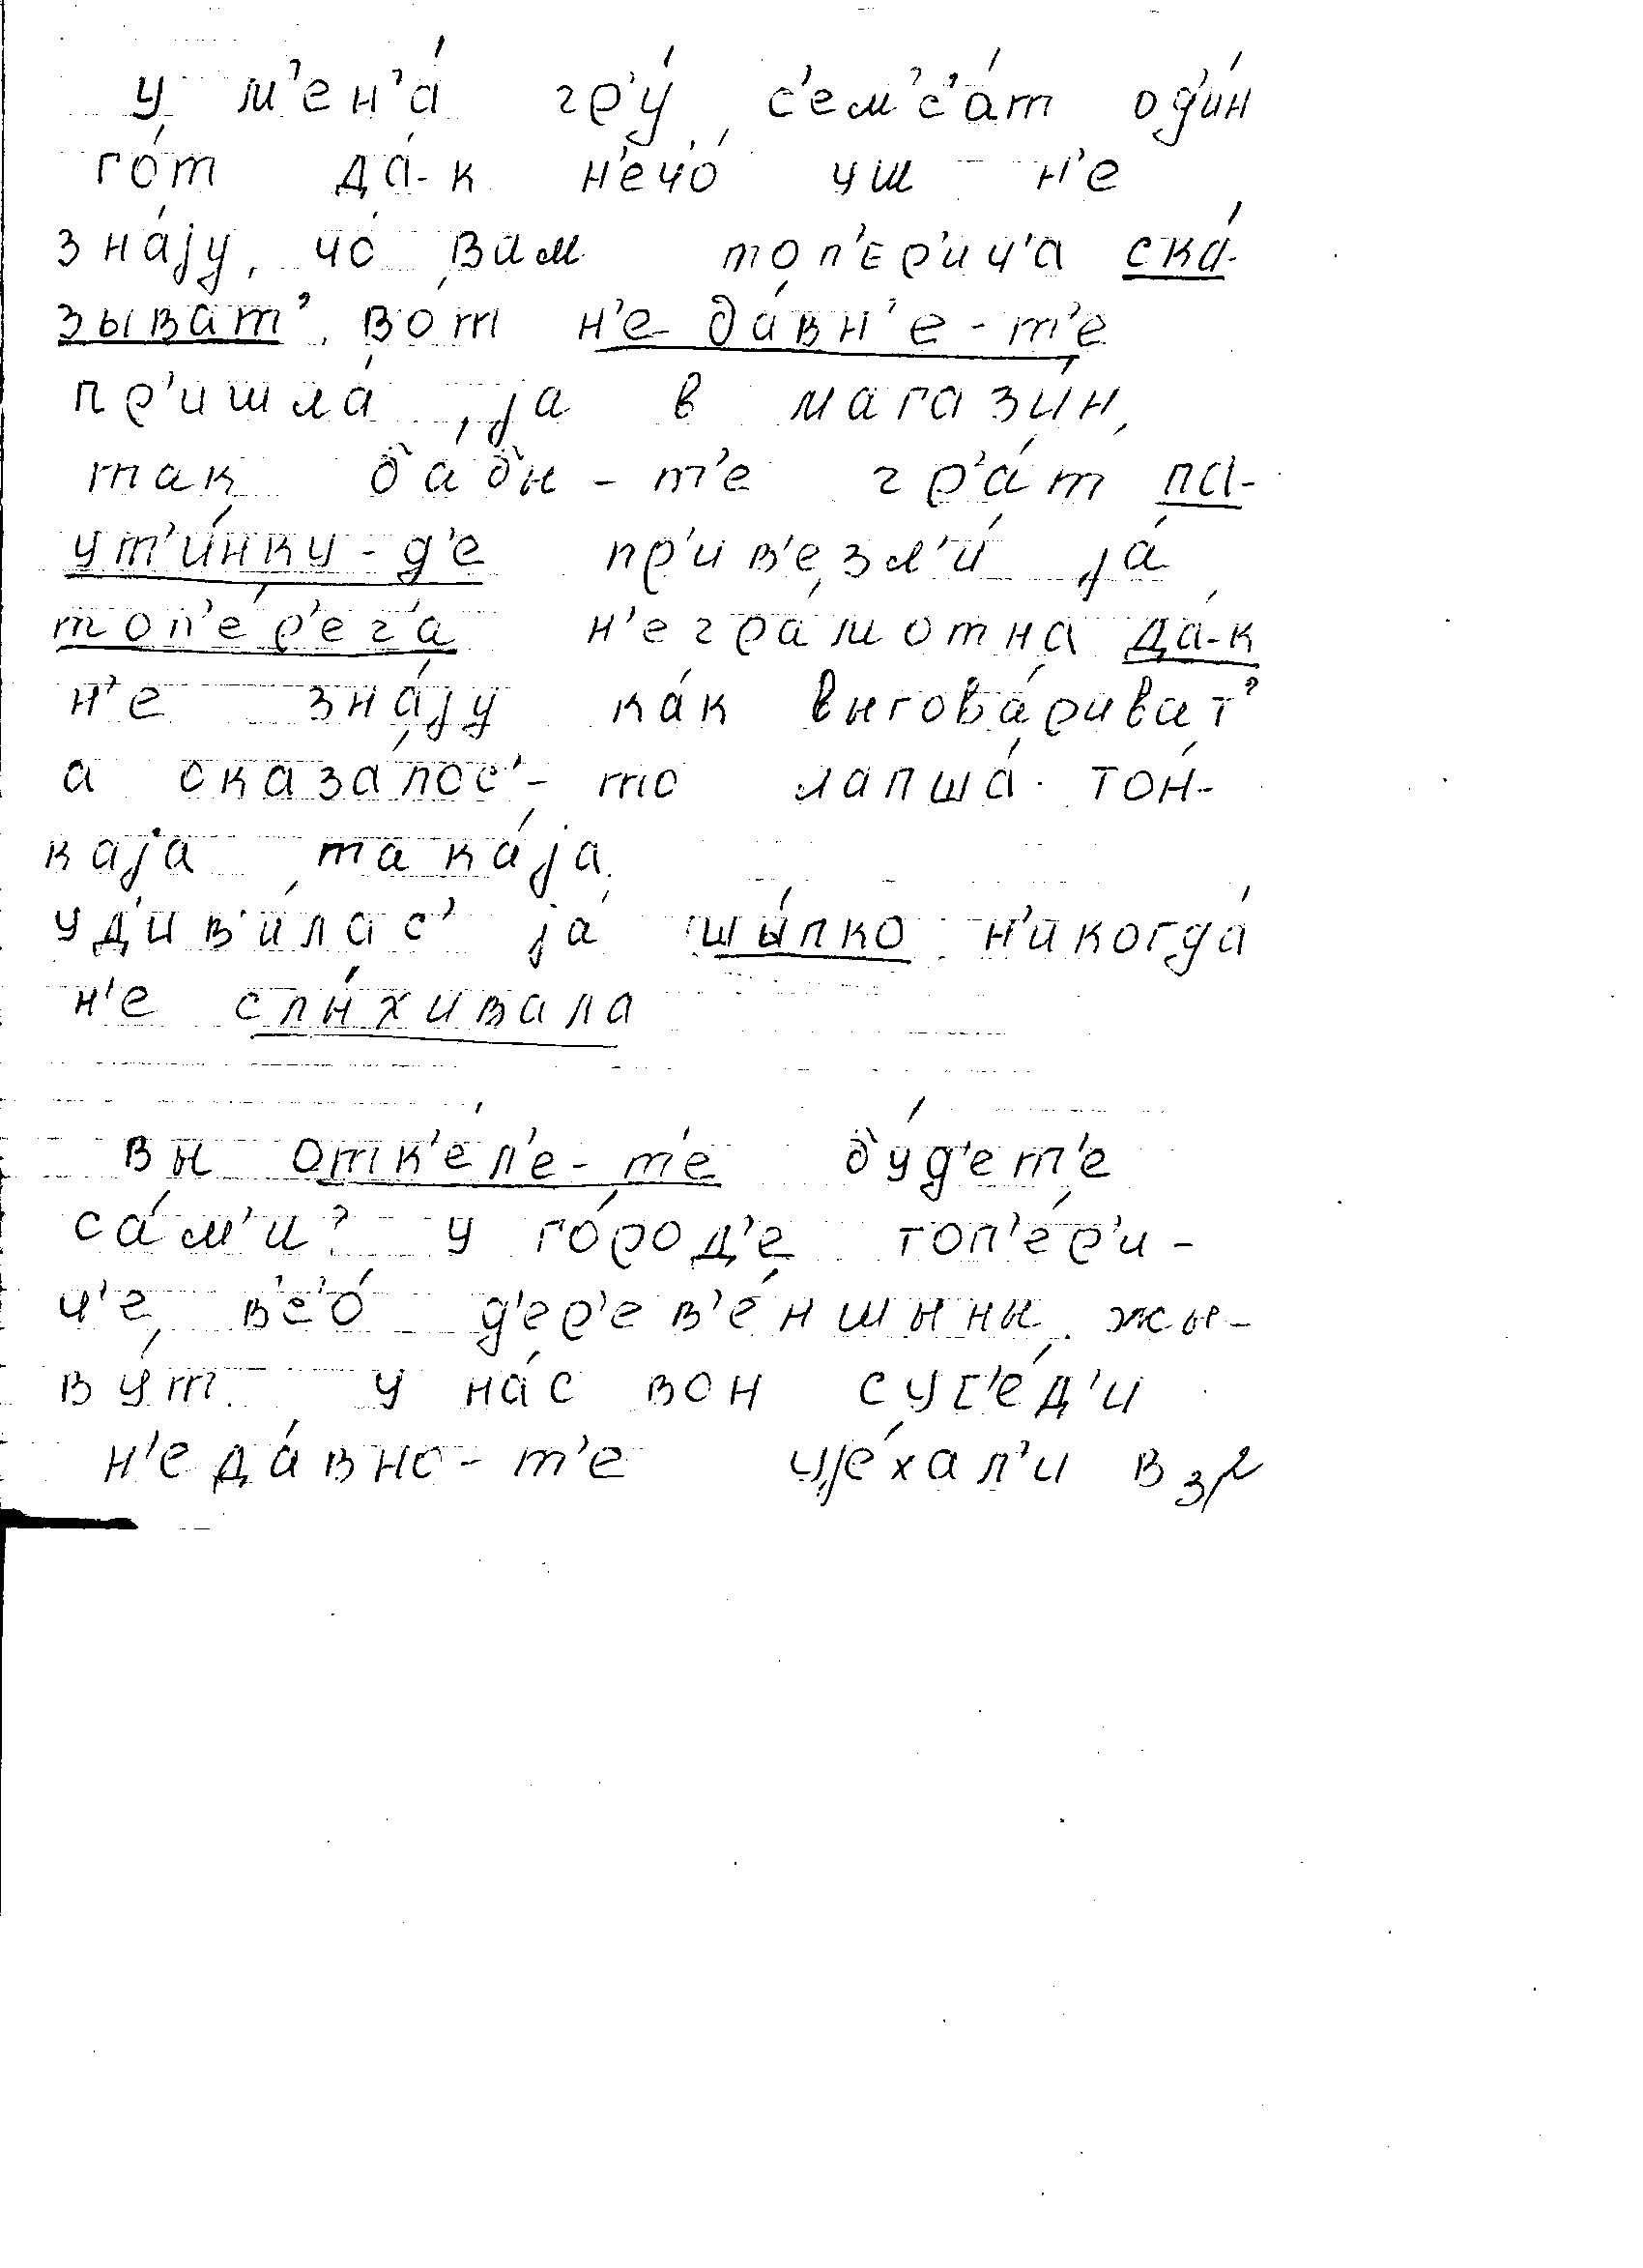 у м'ен'а́ гр'у́, с'ем'с'а́т од'и́н
го́т да́-к н'ечо́ уш н'е
зна́jу, чо́ вам топ'ер'ич'а ска́-
зыват'. во́т н'е да́вн'е-т'е
пр'ишла́, jа в магази́н,
так ба́бы-т'е гр'а́т па-
ут'и́нку-д'е пр'ив'езл'и́ jа́
топ'е́р'ег'а н'егра́мотна да́-к
н'е зна́jу ка́к выгова́риват'
а сказа́лос'-то лапша́. то́н-
каjа така́jа.
уд'ив'и́лас' jа́ шы́пко н'икогда́
н'е слы́хивала
вы отк'е́л'е-т'е бу́д'ет'е
са́м'и? у го́род'е топ'е́р'и-
ч'е, в'с'о́ д'ер'ев'е́ншыны жы-
ву́т. у на́с вон сус'е́д'и
н'еда́вно-т'е уjе́хал'и в